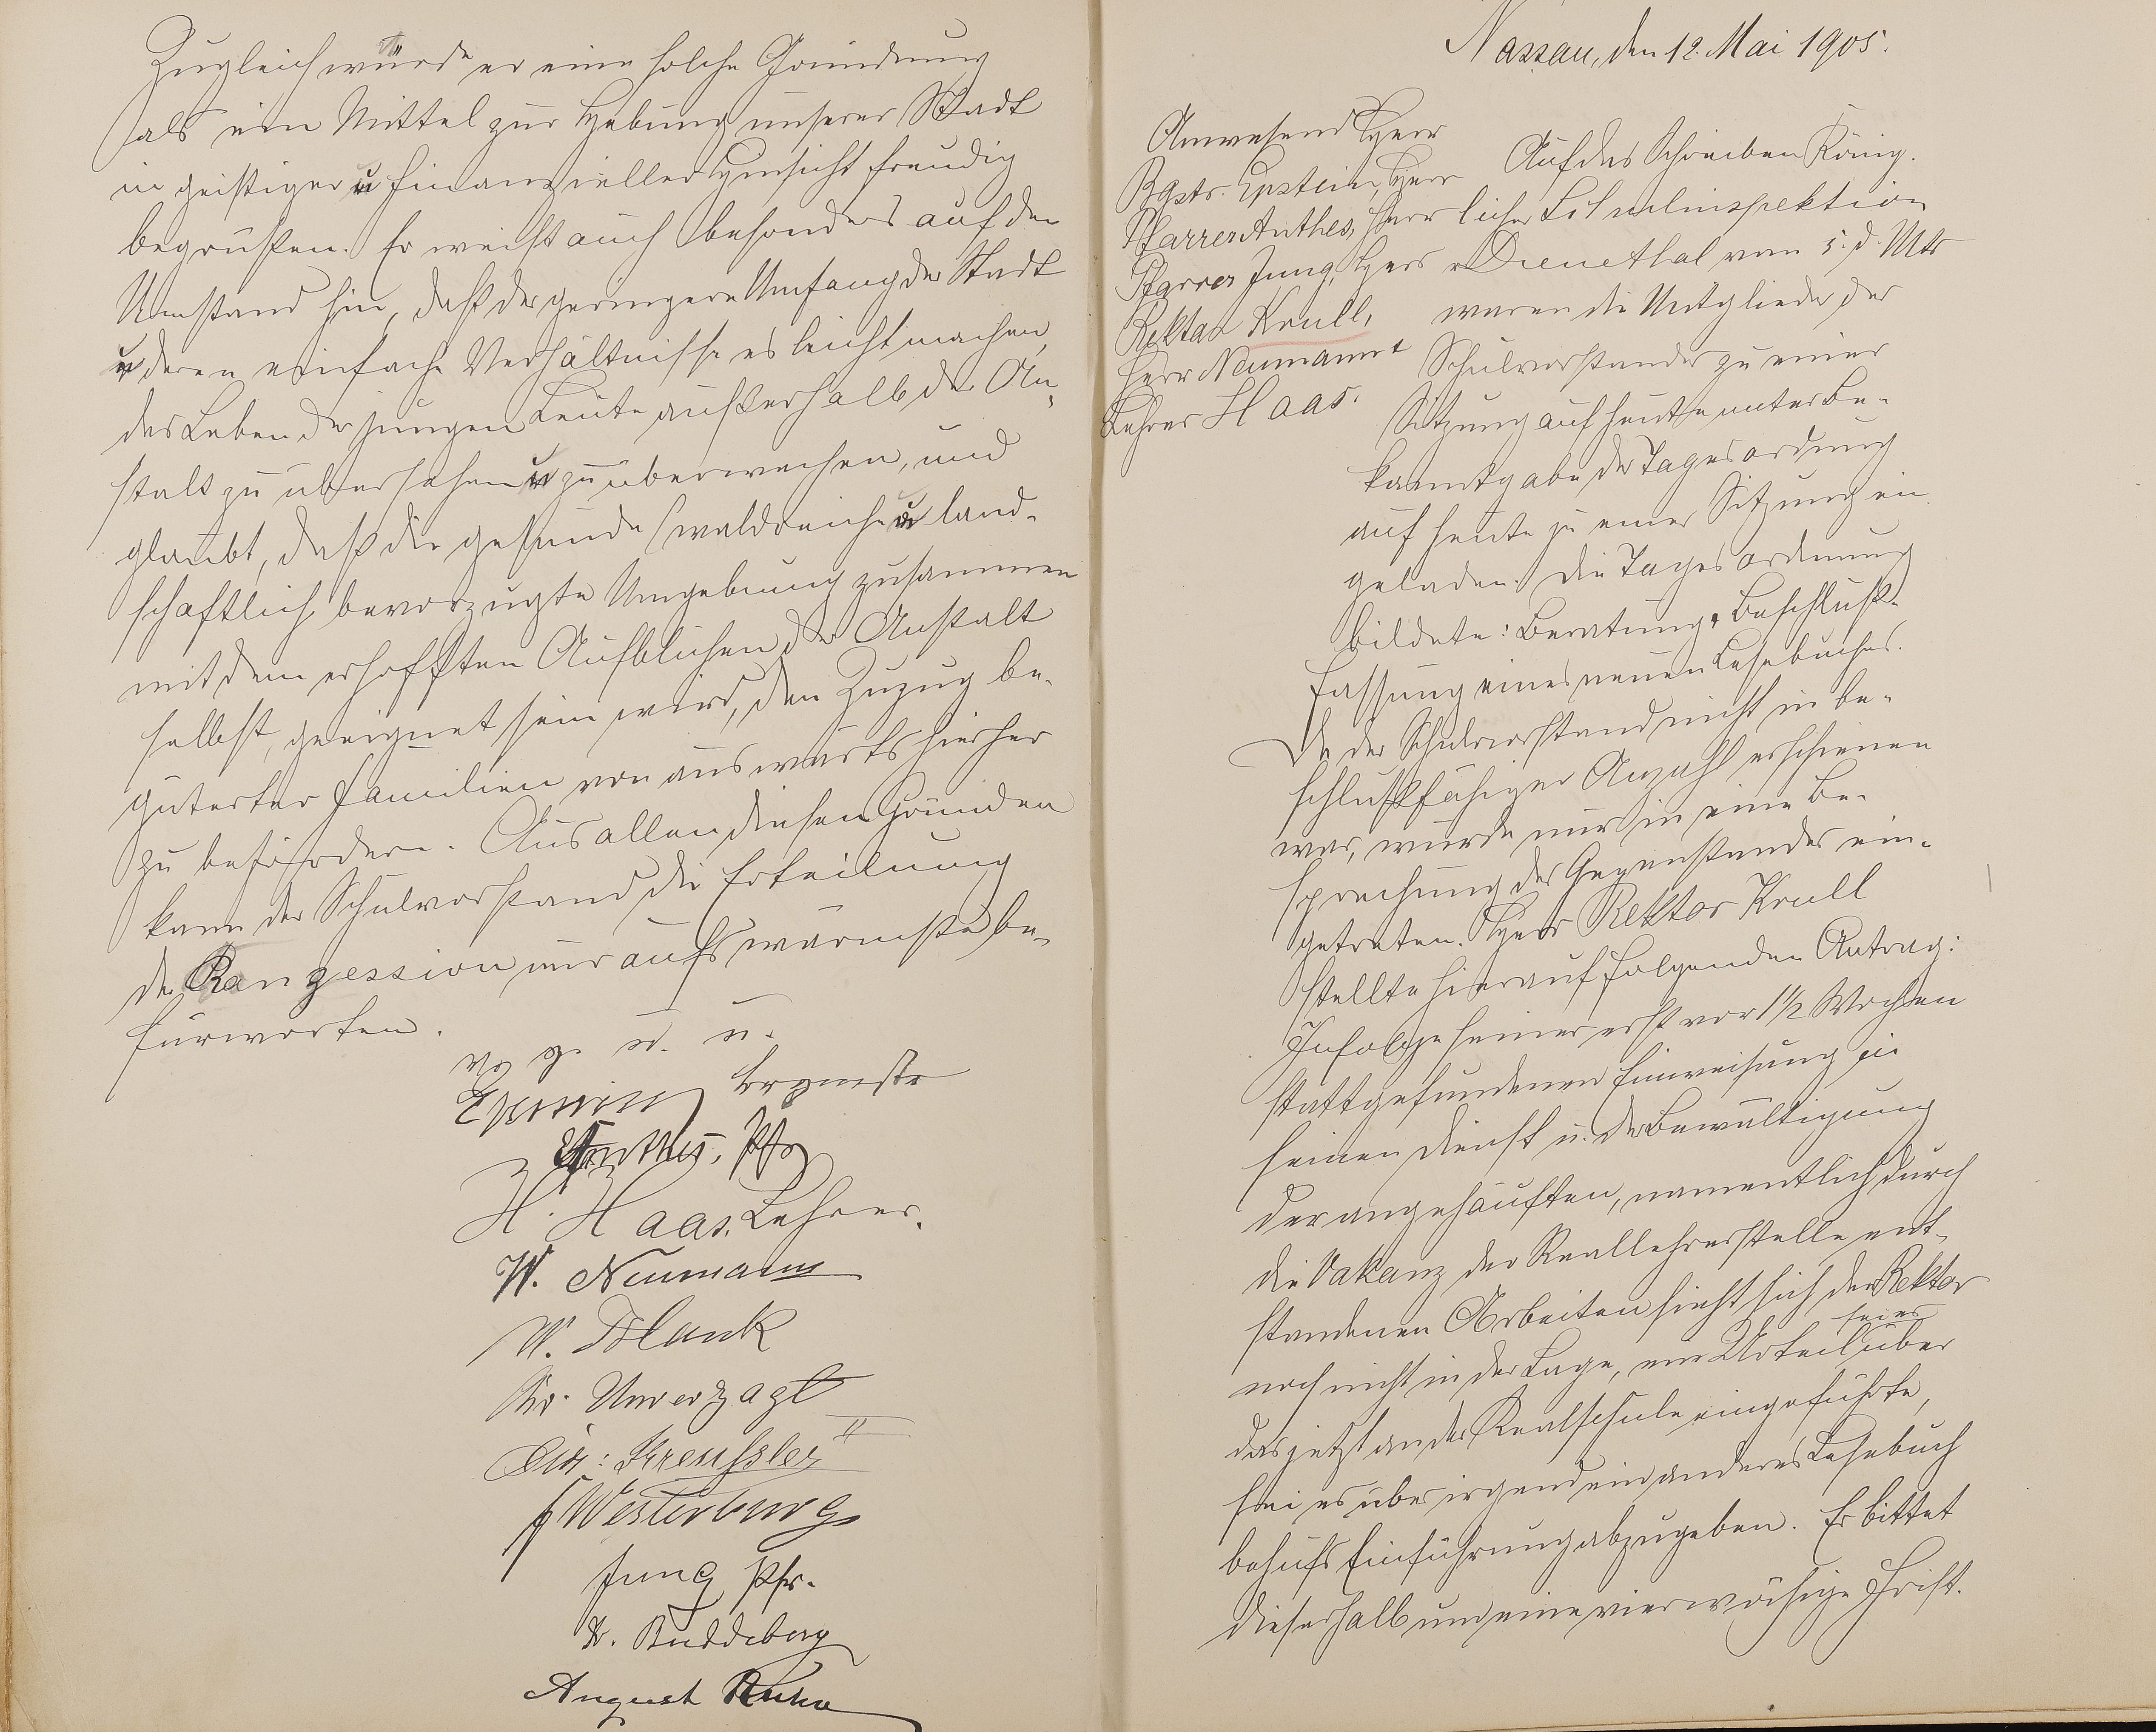 Zugleich würde er eine solche Gründung
als ein Mittel zur Hebung unserer Stadt
in geistiger u finanzieller Hinsicht freudig
begrüßen. Er weist auch besonders auf den
Umstand hin, daß der geringere Umfang der Stadt
u deren einfache Verhältnisse es leicht machen,
das Leben der jungen Leute außerhalb der An-
stalt zu übersehen u zu überwachen, und
glaubt, daß die gesunde, waldreiche u land-
schaftlich bevorzugte Umgebung zusammen
mit dem erhofften Aufblühen der Anstalt
selbst, geeignet sein wird, den Zuzug be-
güterter Familien von auswärts hierher
zu befördern. Aus allen diesen Gründen
kann der Schulvorstand die Erteilung
der Konzession nur aufs wärmste be-
fürworten.
v. g. u. u.
Epstein Brgmstr
Anthes, Pfr
H. Haas, Lehrer.
W. Neumann
W. Blank
Chr. Unverzagt
Kreußler II
Westerburg
Jung Pfr.
Dr. Buddeberg
August
Nassau, den 12. Mai 1905.
Anwesend Herr
Bgstr. Epstein, Herr
Pfarrer Anthes, Herr
Pfarrer Jung, Herr
Rektor Krull,
Herr Neumann
Lehrer Haas.
Auf das Schreiben König-
licher Schulinspektion
Dienethal vom 5. d. Mts
waren die Mitglieder des
Schulvorstandes zu einer
Sitzung auf heute unter Be-
kanntgabe der Tagesordnung
auf heute zu einer Sitzung ein
geladen. Die Tagesordnung
bildete: Beratung u Beschluß-
fassung eines neuen Lesebuches.
Da der Schulvorstand nicht in be-
schlußfähiger Anzahl erschienen
war, wurde nur in eine Be-
sprechung des Gegenstandes ein-
getreten. Herr Rektor Krull
stellte hierauf folgenden Antrag:
Infolge seiner erst vor 1½ Wochen
stattgefundenen Einweisung in
seinen Dienst u. der Bewältigung
der angehäuften, namentlich durch
die Vakanz der Reallehrerstelle ent-
standenen Arbeiten sieht sich der Rektor
noch nicht in der Lage, ein Urteil sei es über
das jetzt an der Realschule eingeführte,
sei es über irgend ein anderes Lesebuch
behufs Einführung abzugeben. Er bittet
dieserhalb um eine vierwöchige Frist.